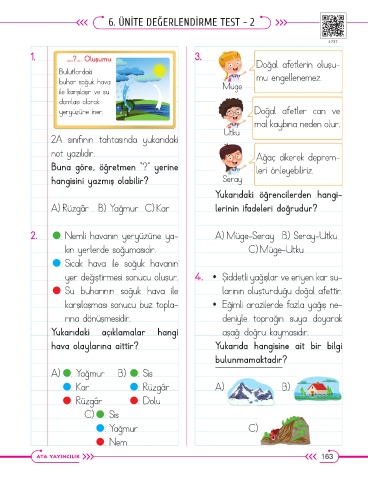 6. ÜNİTE DEĞERLENDİRME TEST - 2
1.
....?.... Oluşumu
Bulutlardaki
buhar soğuk hava
ile karşılaşır ve su
damlası olarak
yeryüzüne iner.
2A sınıfının tahtasında yukarıdaki
not yazılıdır.
Buna göre, öğretmen "?" yerine
hangisini yazmış olabilir?
A) Rüzgâr B) Yağmur C) Kar
2. Nemli havanın yeryüzüne ya-
kın yerlerde soğumasıdır.
Sıcak hava ile soğuk havanın
yer değiştirmesi sonucu oluşur.
Su buharının soğuk hava ile
karşılaşması sonucu buz topla-
rına dönüşmesidir.
Yukarıdaki açıklamalar hangi
hava olaylarına aittir?
A) Yağmur B) Sis
Kar Rüzgâr
Rüzgâr Dolu
C) Sis
Yağmur
Nem
3.
Doğal afetlerin oluşu-
mu engellenemez.
Müge
Doğal afetler can ve
mal kaybına neden olur.
Utku
Ağaç dikerek deprem-
leri önleyebiliriz.
Seray
Yukarıdaki öğrencilerden hangi-
lerinin ifadeleri doğrudur?
A) Müge-Seray B) Seray-Utku
C) Müge-Utku
4. • Şiddetli yağışlar ve eriyen kar su-
larının oluşturduğu doğal afettir.
• Eğimli arazilerde fazla yağış ne-
deniyle toprağın suya doyarak
aşağı doğru kaymasıdır.
Yukarıda hangisine ait bir bilgi
bulunmamaktadır?
A) B)
C)
ATA YAYINCILIK
163